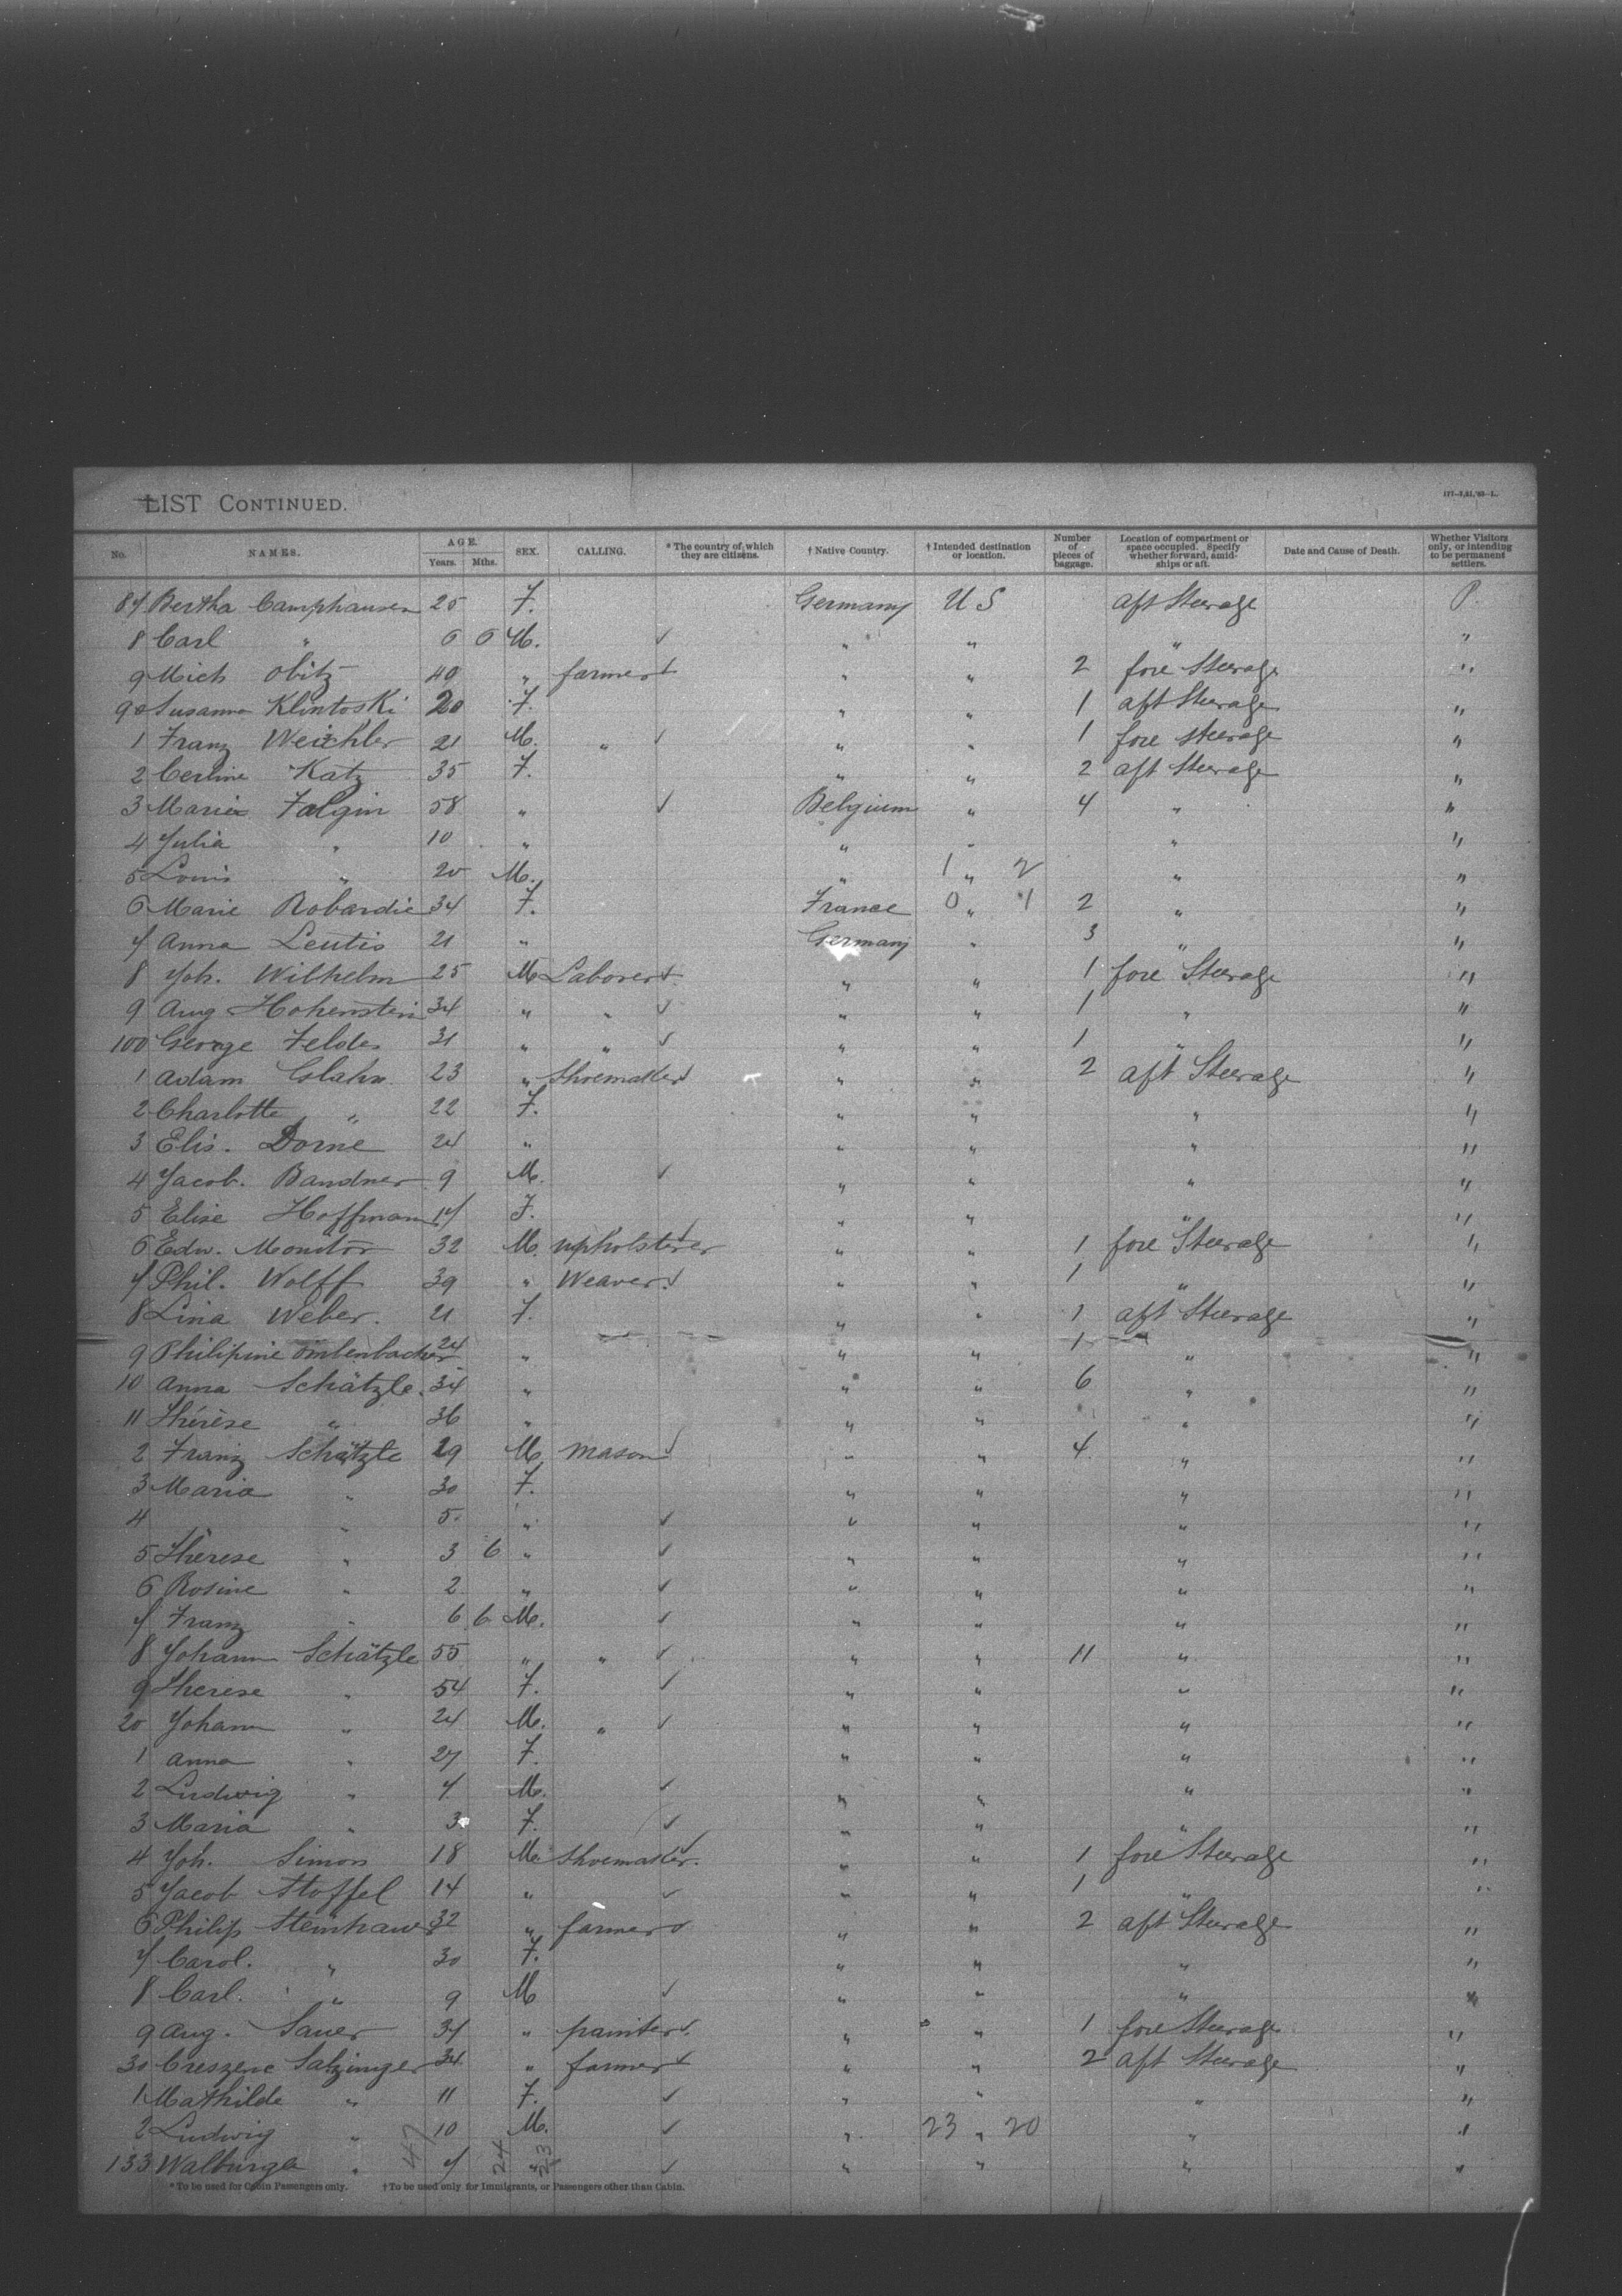 LIST CONTINUED.
No. NAMES. AGE. Years. Mths. SEX. CALLING. * The country of which they are citizens. † Native Country. † Intended destination or location. Number of pieces of baggage. Location of compartment or space occupied. Specify whether forward, amidships or aft. Date and Cause of Death. Whether Visitors only, or intending to be permanent settlers.
87 Bertha Camphausen 25 F. Germany U S aft Steerage P.
8 Carl " 6 6 M. ✓ " " " "
9 Mich Obitz 40 " farmer ✓ " " 2 fore Steerage "
90 Susanna Klintoski 20 F. " " 1 aft Steerage "
1 Franz Weichler 21 M. " ✓ " " 1 fore steerage "
2 Cerline Katz 35 F. " " 2 aft Steerage "
3 Maria Falgin 58 " ✓ Belgium " 4 " "
4 Julia " 10 " " " " "
5 Louis " 20 M. " 1 " 2 " "
6 Marie Robardie 34 F. France 0 " 1 2 " "
7 Anna Leutis 21 " Germany " 3 " "
8 Joh. Wilhelm 25 M Laborer ✓ " " 1 fore Steerage "
9 Aug Hohenstein 34 " " ✓ " " 1 " "
100 George Feldes 31 " " ✓ " " 1 " "
1 Adam Glahn 23 " Shoemaker ✓ " " 2 aft Steerage "
2 Charlotte " 22 F. " " " "
3 Elis. Dorne 24 " " " " "
4 Jacob. Bandner 9 M. ✓ " " " "
5 Elise Hoffman 17 F. " " " "
6 Edw. Monitor 32 M. upholsterer ✓ " " 1 fore Steerage "
7 Phil. Wolff 39 " Weaver ✓ " " 1 " "
8 Lina Weber. 21 F. " " 1 aft Steerage "
9 Philipine 24 " " " 1 " "
10 Anna Schätzle. 34 " " " 6 " "
11 Thérèse " 36 " " " " "
2 Franz Schätzle 29 M mason ✓ " " 4 " "
3 Maria " 30 F. " " " "
4 " 5 " ✓ " " " "
5 Therese " 3 6 " ✓ " " " "
6 Rosine " 2 " ✓ " " " "
7 Franz " 6 6 M. ✓ " " " "
8 Johann Schätzle 55 " " ✓ " " 11 " "
9 Therese " 54 F. ✓ " " " "
20 Johann " 24 M. " ✓ " " " "
1 Anna " 27 F. " " " "
2 Ludwig " 7 M. ✓ " " " "
3 Maria " 3 F. ✓ " " " "
4 Joh. Simon 18 M. Shoemaker. ✓ " " 1 fore Steerage "
5 Jacob Stoffel 14 " ✓ " " 1 " "
6 Philip Steinhaus 32 " farmer ✓ " " 2 aft Steerage "
7 Carol. " 30 F. " " " "
8 Carl. " 9 M ✓ " " " "
9 Aug. Sauer 37 " painter ✓ " " 1 fore Steerage "
30 Creszenc Salzinger 34 " farmer ✓ " " 2 aft Steerage "
1 Mathilde " 11 F. ✓ " " " "
2 Ludwig " 10 M. ✓ " 23 " 20 " "
133 Walburga " 7 " ✓ " " " "
47 24 23
* To be used for Cabin Passengers only. † To be used only for Immigrants, or Passengers other than Cabin.